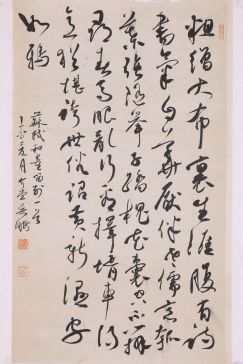 粗繒大布裹生涯腹有詩
書氣自華厭伴老儒烹瓠
葉強隨舉子踏槐花囊空不辦
尋春馬眼亂行看擇婿車得
意猶堪誇世俗詔黃新濕字
如鴉
蘇軾和董傳留別一首
元月